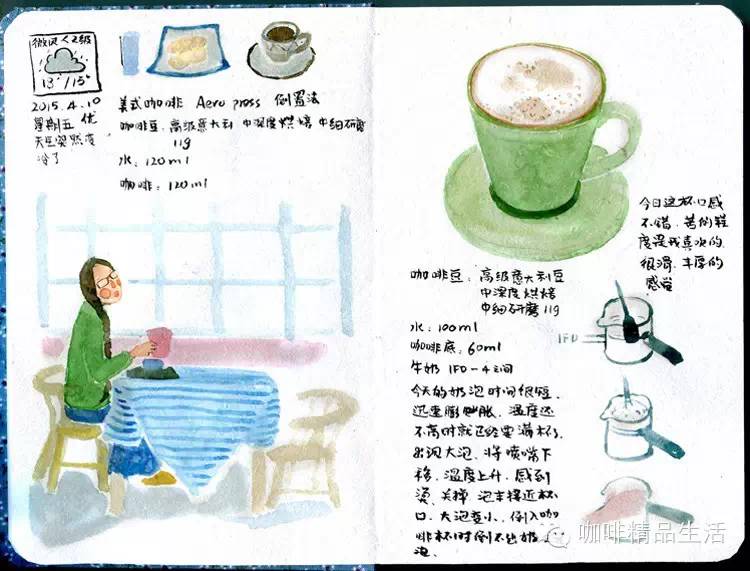 微风<2级
13°/15°
2015.4.10
星期五 优
天气突然变
冷了
美式咖啡 Aero press 倒置法
咖啡豆:高级意大利 中深度烘焙 中细研磨
11g
水:120ml
咖啡:120ml
今日这杯口感
不错,苦的程
度是我喜欢的
很滑,丰厚的
感觉
咖啡豆:高级意大利豆
中深度烘焙
中细研磨11g
水:100ml
咖啡底:60ml
牛奶 1FD-4之间
1FD
今天的奶泡时间很短,
迅速膨胀,温度还
不高时就已经要满杯了,
出现大泡,将喷嘴下
移,温度上升,感到
烫,关掉,泡末接近杯
口,大泡变小,倒入咖
啡杯时倒不出奶
泡.
咖啡精品生活